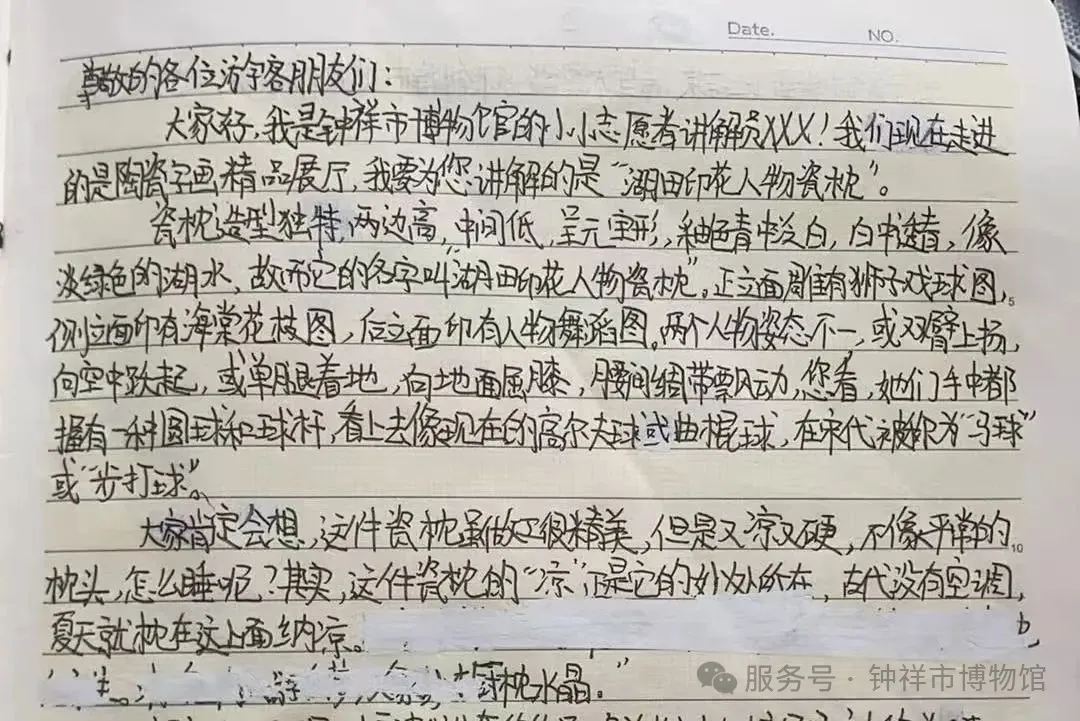 Date. NO.
尊敬的各位游客朋友们：
大家好，我是钟祥市博物馆的小小志愿者讲解员XXX！我们现在走进
的是陶瓷字画精品展厅，我要为您讲解的是“湖田印花人物瓷枕”。
瓷枕造型独特，两边高，中间低，呈元宝形，釉色青中泛白，白中透青，像
淡绿色的湖水，故而它的名字叫“湖田印花人物瓷枕”。正立面雕有狮子戏球图，
5
侧立面印有海棠花枝图，后立面印有人物舞蹈图。两个人物姿态不一，或双臂上扬，
向空中跃起，或单腿着地，向地面屈膝，腰间绸带飘动，您看，她们手中都
握有一种圆球和球杆，看上去像现在的高尔夫球或曲棍球，在宋代被称为“马球”
或“步打球”。
大家肯定会想，这件瓷枕虽做工很精美，但是又凉又硬，不像平常的
10
枕头，怎么睡呢？其实，这件瓷枕的“凉”正是它的妙处所在，古代没有空调，
夏天就枕在这上面纳凉。
枕水晶。”
服务号·钟祥市博物馆